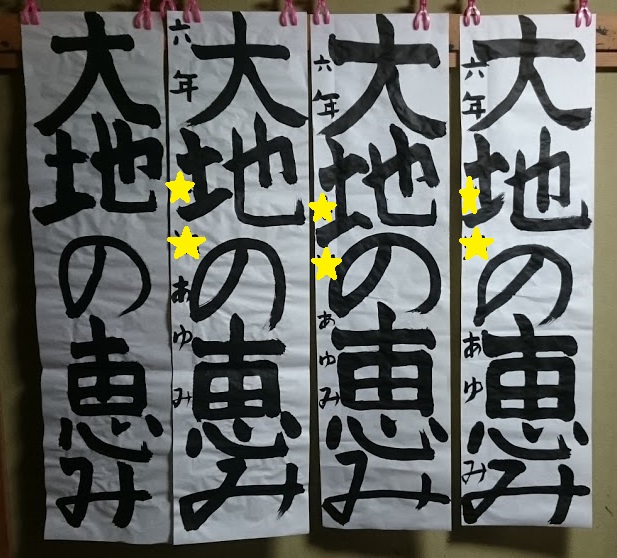 大地の恵み
六年 あゆみ
大地の恵み
六年 あゆみ
大地の恵み
六年 あゆみ
大地の恵み